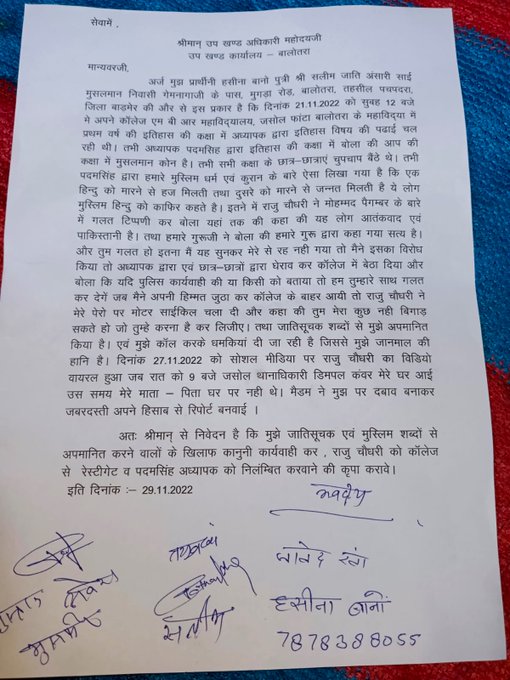 सेवामें ,
श्रीमान् उप खण्ड अधिकारी महोदयजी
उप खण्ड कार्यालय – बालोतरा
मान्यवरजी,
अर्ज मुझ प्रार्थीनी हसीना बानो पुत्री श्री सलीम जाति अंसारी साई
मुसलमान निवासी गेमनागाजी के पास, मुगड़ा रोड़, बालोतरा, तहसील पचपदरा,
जिला बाड़मेर की और से इस प्रकार है कि दिनांक 21.11.2022 को सुबह 12 बजे
मे अपने कॉलेज एम बी आर महाविद्यालय, जसोल फांटा बालोतरा के महाविद्या में
प्रथम वर्ष की इतिहास की कक्षा में अध्यापक द्वारा इतिहास विषय की पढाई चल
रही थी। तभी अध्यापक पदमसिंह द्वारा इतिहास की कक्षा में बोला की आप की
कक्षा में मुसलमान कोन है। तभी सभी कक्षा के छात्र–छात्राएं चुपचाप बैंठे थे। तभी
पदमसिंह द्वारा हमारे मुस्लिम धर्म एवं कुरान के बारे ऐसा लिखा गया है कि एक
हिन्दु को मारने से हज मिलती तथा दुसरे को मारने से जन्नत मिलती है ये लोग
मुस्लिम हिन्दु को काफिर कहते है। इतने में राजु चौधरी ने मोहम्मद पैगम्बर के बारे
में गलत टिप्पणी कर बोला यहां तक की कहा की यह लोग आतंकवाद एवं
पाकिस्तानी है। तथा हमारे गुरूजी ने बोला की हमारे गुरू द्वारा कहा गया सत्य है।
और तुम गलत हो इतना मैं यह सुनकर मेरे से रह नही गया तो मैने इसका विरोध
किया तो अध्यापक द्वारा एवं छात्र–छात्रों द्वारा घेराव कर कॉलेज में बेठा दिया और
बोला कि यदि पुलिस कार्यवाही की या किसी को बताया तो हम तुम्हारे साथ गलत
कर देगें जब मैने अपनी हिम्मत जुठा कर कॉलेज के बाहर आयी तो राजु चौधरी ने
मेरे पेरो पर मोटर साईकिल चला दी और कहा की तुम मेरा कुछ नही बिगाड़
सकते हो जो तुम्हे करना है कर लिजीए। तथा जातिसूचक शब्दों से मुझे अपमानित
किया है। एवं मुझे कॉल करके धमकियां दी जा रही है जिससे मुझे जानमाल की
हानि है। दिनांक 27.11.2022 को सोशल मीडिया पर राजु चौधरी का विडियो
वायरल हुआ जब रात को 9 बजे जसोल थानाधिकारी डिमपल कंवर मेरे घर आई
उस समय मेरे माता – पिता घर पर नही थे। मैडम ने मुझ पर दबाव बनाकर
जबरदस्ती अपने हिसाब से रिपोर्ट बनवाई ।
अतः श्रीमान् से निवेदन है कि मुझे जातिसूचक एवं मुस्लिम शब्दों से
अपमानित करने वालों के खिलाफ कानुनी कार्यवाही कर , राजु चौधरी को कॉलेज
से रेस्टीगेट व पदमसिंह अध्यापक को निलंम्बित करवाने की कृपा करावे।
इति दिनांक :– 29.11.2022
सलीम
हसीना बानों
7878388055